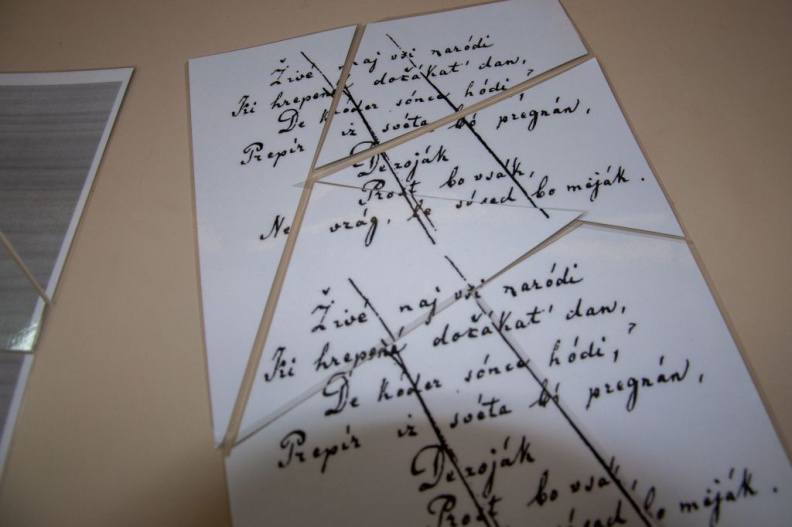 Živé naj vsi naródi
Ki hrepené dočákat' dan,
De kóder sónce hódi,
Prepír iz svéta bó pregnán,
De roják
Prost bo vsák,
Ne vrág, le sósed bo mêják.
Živé naj vsi naródi
Ki hrepené dočákat' dan,
De kóder sónce hódi,
Prepír iz svéta bó pregnán,
De roják
Prost bo vsák
sósed bo mêják.